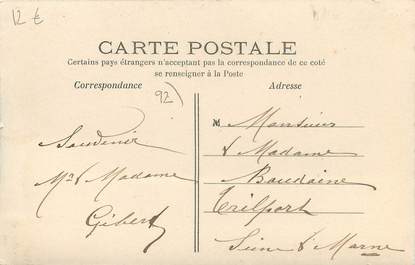 12 €
CARTE POSTALE
Certains pays étrangers n'acceptant pas la correspondance de ce coté
se renseigner à la Poste
Correspondance
Adresse
92)
Souvenir
Mr & Madame
Gibert
M Monsieur
& Madame
Baudaine
Trilport
Seine & Marne